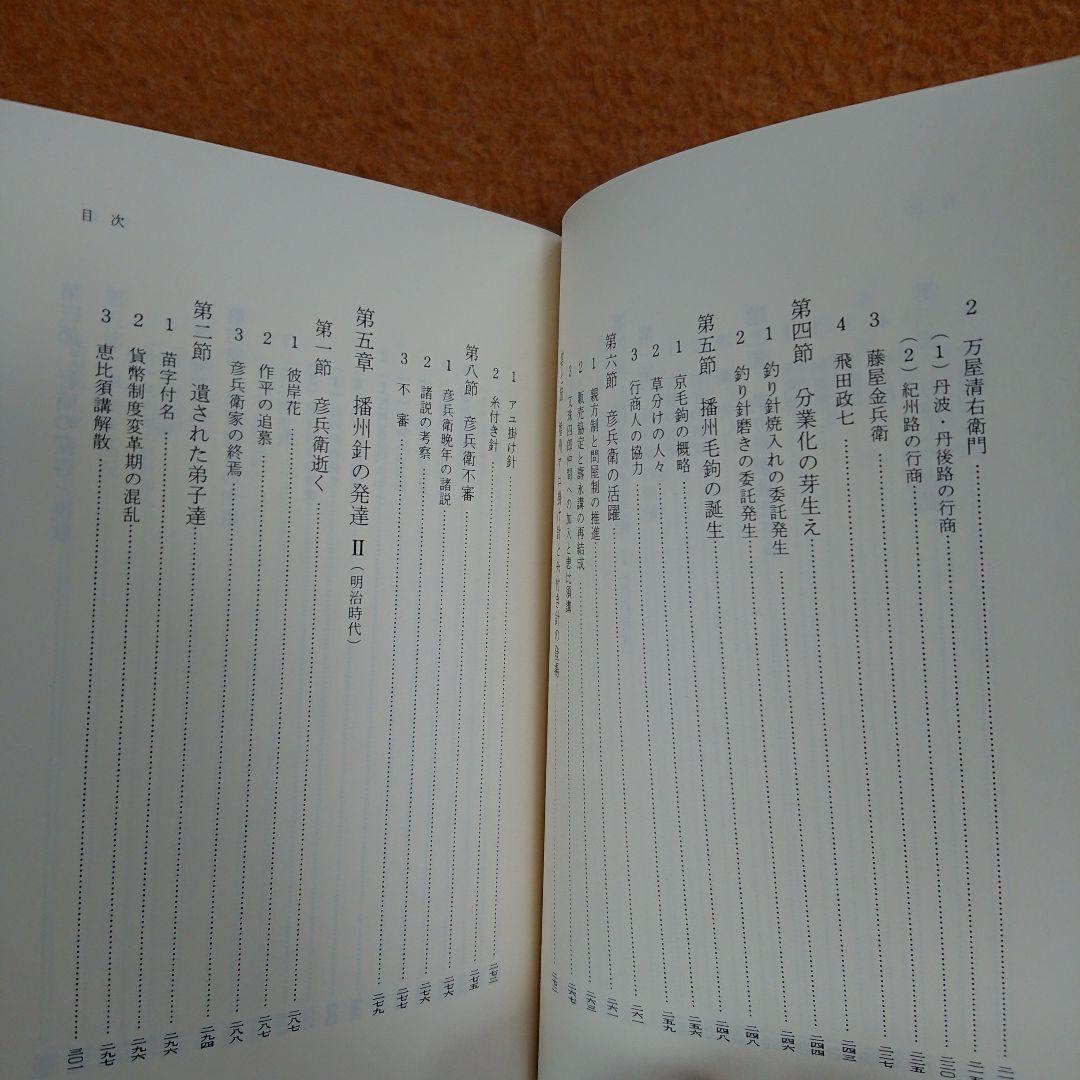 2 万屋清右衛門
(1) 丹波・丹後路の行商
(2) 紀州路の行商 二三五
3 藤屋金兵衛 二三七
4 飛田政七 二四三
第四節 分業化の芽生え 二四四
1 釣り針焼入れの委託発生 二四六
2 釣り針磨きの委託発生 二四八
第五節 播州毛鉤の誕生 二四八
1 京毛鉤の概略
2 草分けの人々 二五九
3 行商人の協力 二六一
第六節 彦兵衛の活躍 二六一
1 親方制と問屋制の推進 二六三
2 販売協定と講の再結成 二六七
目次
1 アユ掛け針 二七二
2 糸付き針
第八節 彦兵衛不審 二七五
1 彦兵衛晩年の諸説 二七六
2 諸説の考察 二七六
3 不審 二七七
第五章 播州針の発達 Ⅱ(明治時代) 二七九
第一節 彦兵衛逝く
1 彼岸花 二八七
2 作平の追慕 二八七
3 彦兵衛家の終焉 二八八
第二節 遺された弟子達 二九四
1 苗字付名 二九六
2 貨幣制度変革期の混乱 二九六
3 恵比須講解散
二九七
三〇一